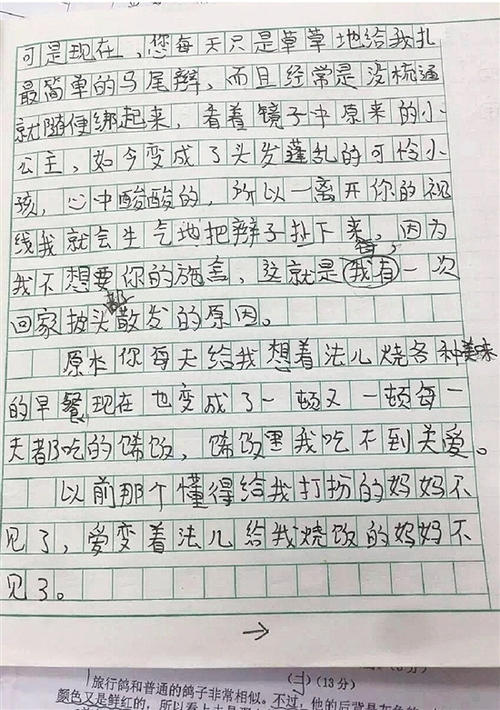 可是现在，您每天只是草草地给我扎
最简单的马尾辫，而且经常是没梳通
就随便绑起来，看着镜子中原来的小
公主，如今变成了头发蓬乱的可怜小
孩，心中酸酸的，所以一离开你的视
线我就会生气地把辫子扯下来，因为
我不想要你的施舍，这就是我每一次
回家披头散发的原因。
原来你每天给我想着法儿烧各种美味
的早餐现在也变成了一顿又一顿每一
天都吃的馊饭，馊饭里我吃不到关爱。
以前那个懂得给我打扮的妈妈不
见了，爱变着法儿给我烧饭的妈妈不
见了。
→
(二)(13分)
旅行鸽和普通的鸽子非常相似。不过，他的后背是灰色的
颜色又是鲜红的，所以看上去